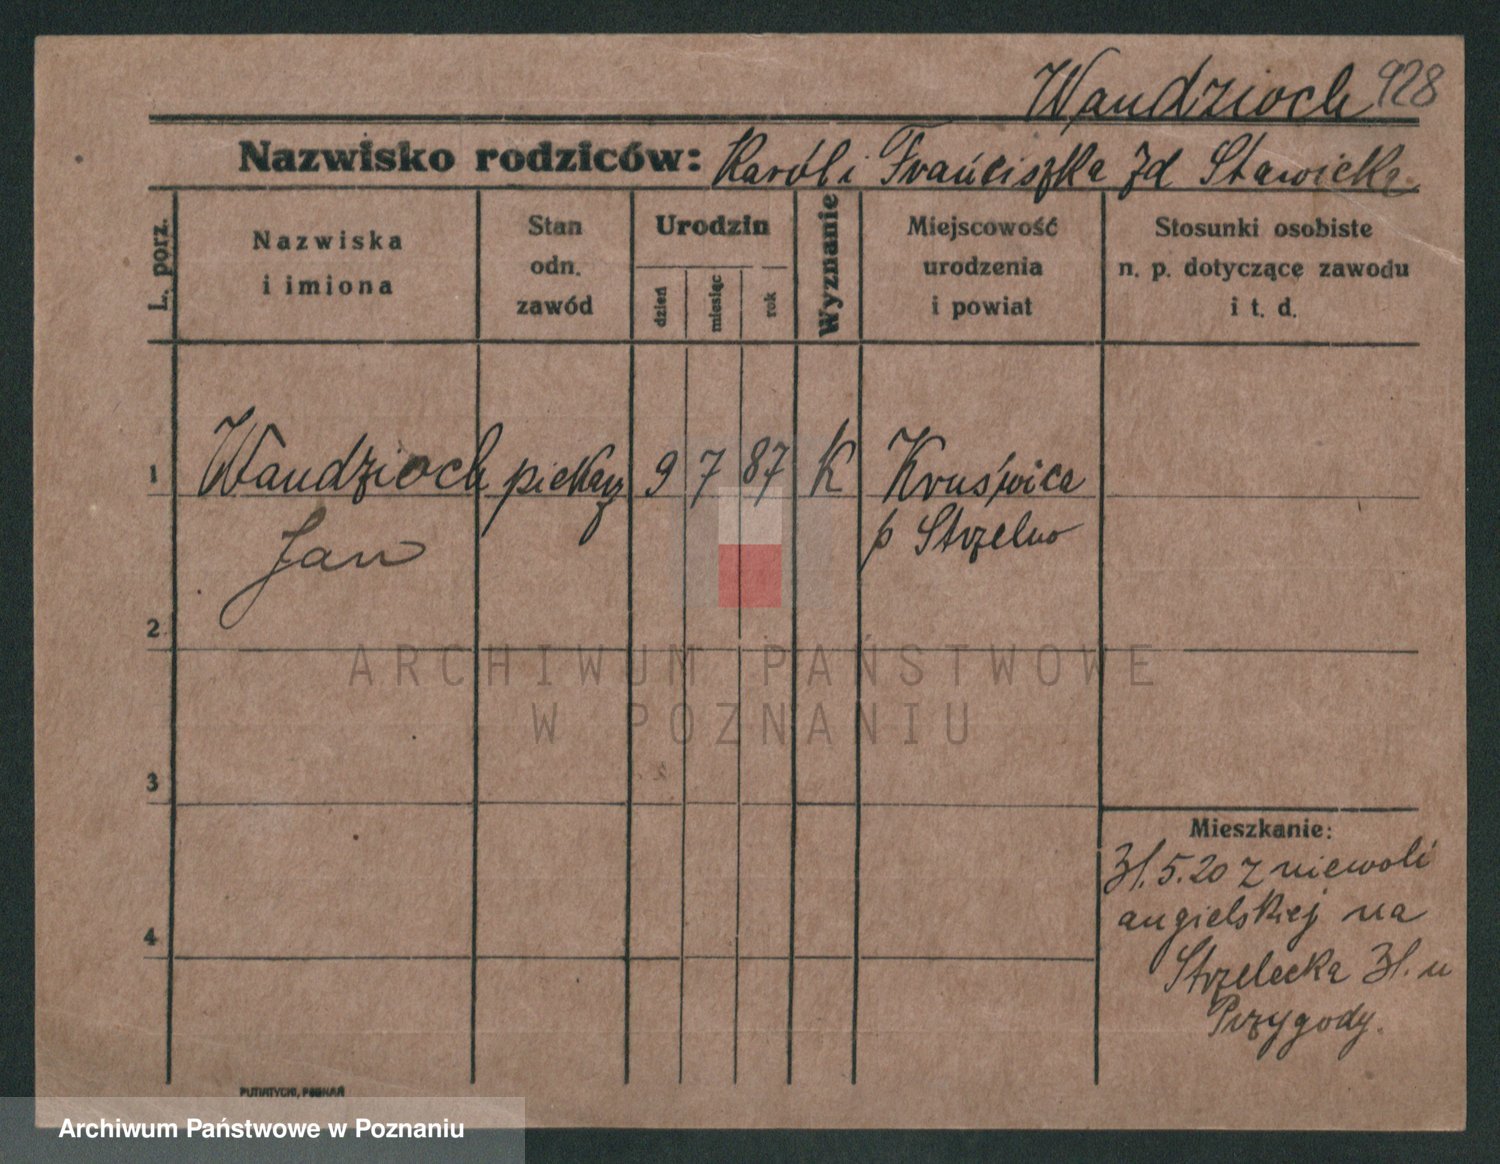 Wandzioch 928
Nazwisko rodziców: Karól i Frańciszka zd Stawicka
L. porz.
Nazwiska
i imiona
Stan
odn.
zawód
Urodzin
dzień
miesiąc
rok
Wyznanie
Miejscowość
urodzenia
i powiat
Stosunki osobiste
n. p. dotyczące zawodu
i t. d.
1 Wandzioch piekarz 9 7 87 K Kruświca
Jan
p Strzelno
2
ARCHIWUM PAŃSTWOWE
W POZNANIU
3
Mieszkanie:
31.5.20 z niewoli
angielskiej na
4
Strzelecka 31. u
Przygody.
PUTIATYCKI, POZNAŃ
Archiwum Państwowe w Poznaniu